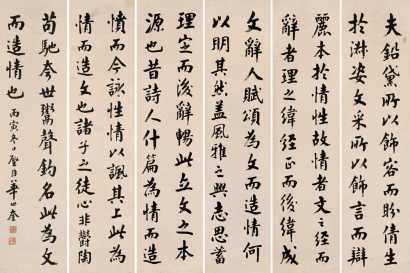 夫鉛黛所以飾容而盼倩生
於淑姿文采所以飾言而辯
麗本於情性故情者文之經而
辭者理之緯經正而後緯成
文辭人賦頌為文而造情何
以明其然蓋風雅之興志思蓄
理定而後辭暢此立文之本
源也昔詩人什篇為情而造
憤而今詠性情以諷其上此為
情而造文也諸子之徒心非鬱陶
苟馳夸世鬻聲釣名此為文
而造情也 丙寅冬 華世奎